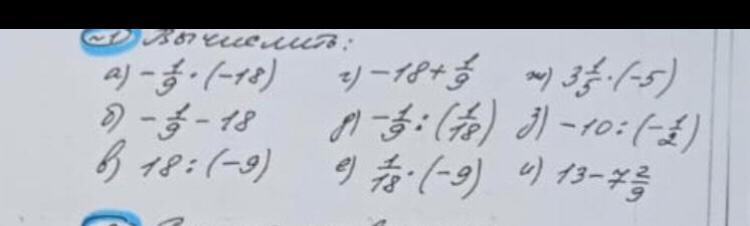 №1 Вычислить:
а) -1/9 · (-18) г) -18 + 1/9 ж) 3 1/5 · (-5)
б) -1/9 - 18 д) -1/9 : (1/18) з) -10 : (-1/2)
в) 18 : (-9) е) 1/18 · (-9) и) 13 - 7 2/9